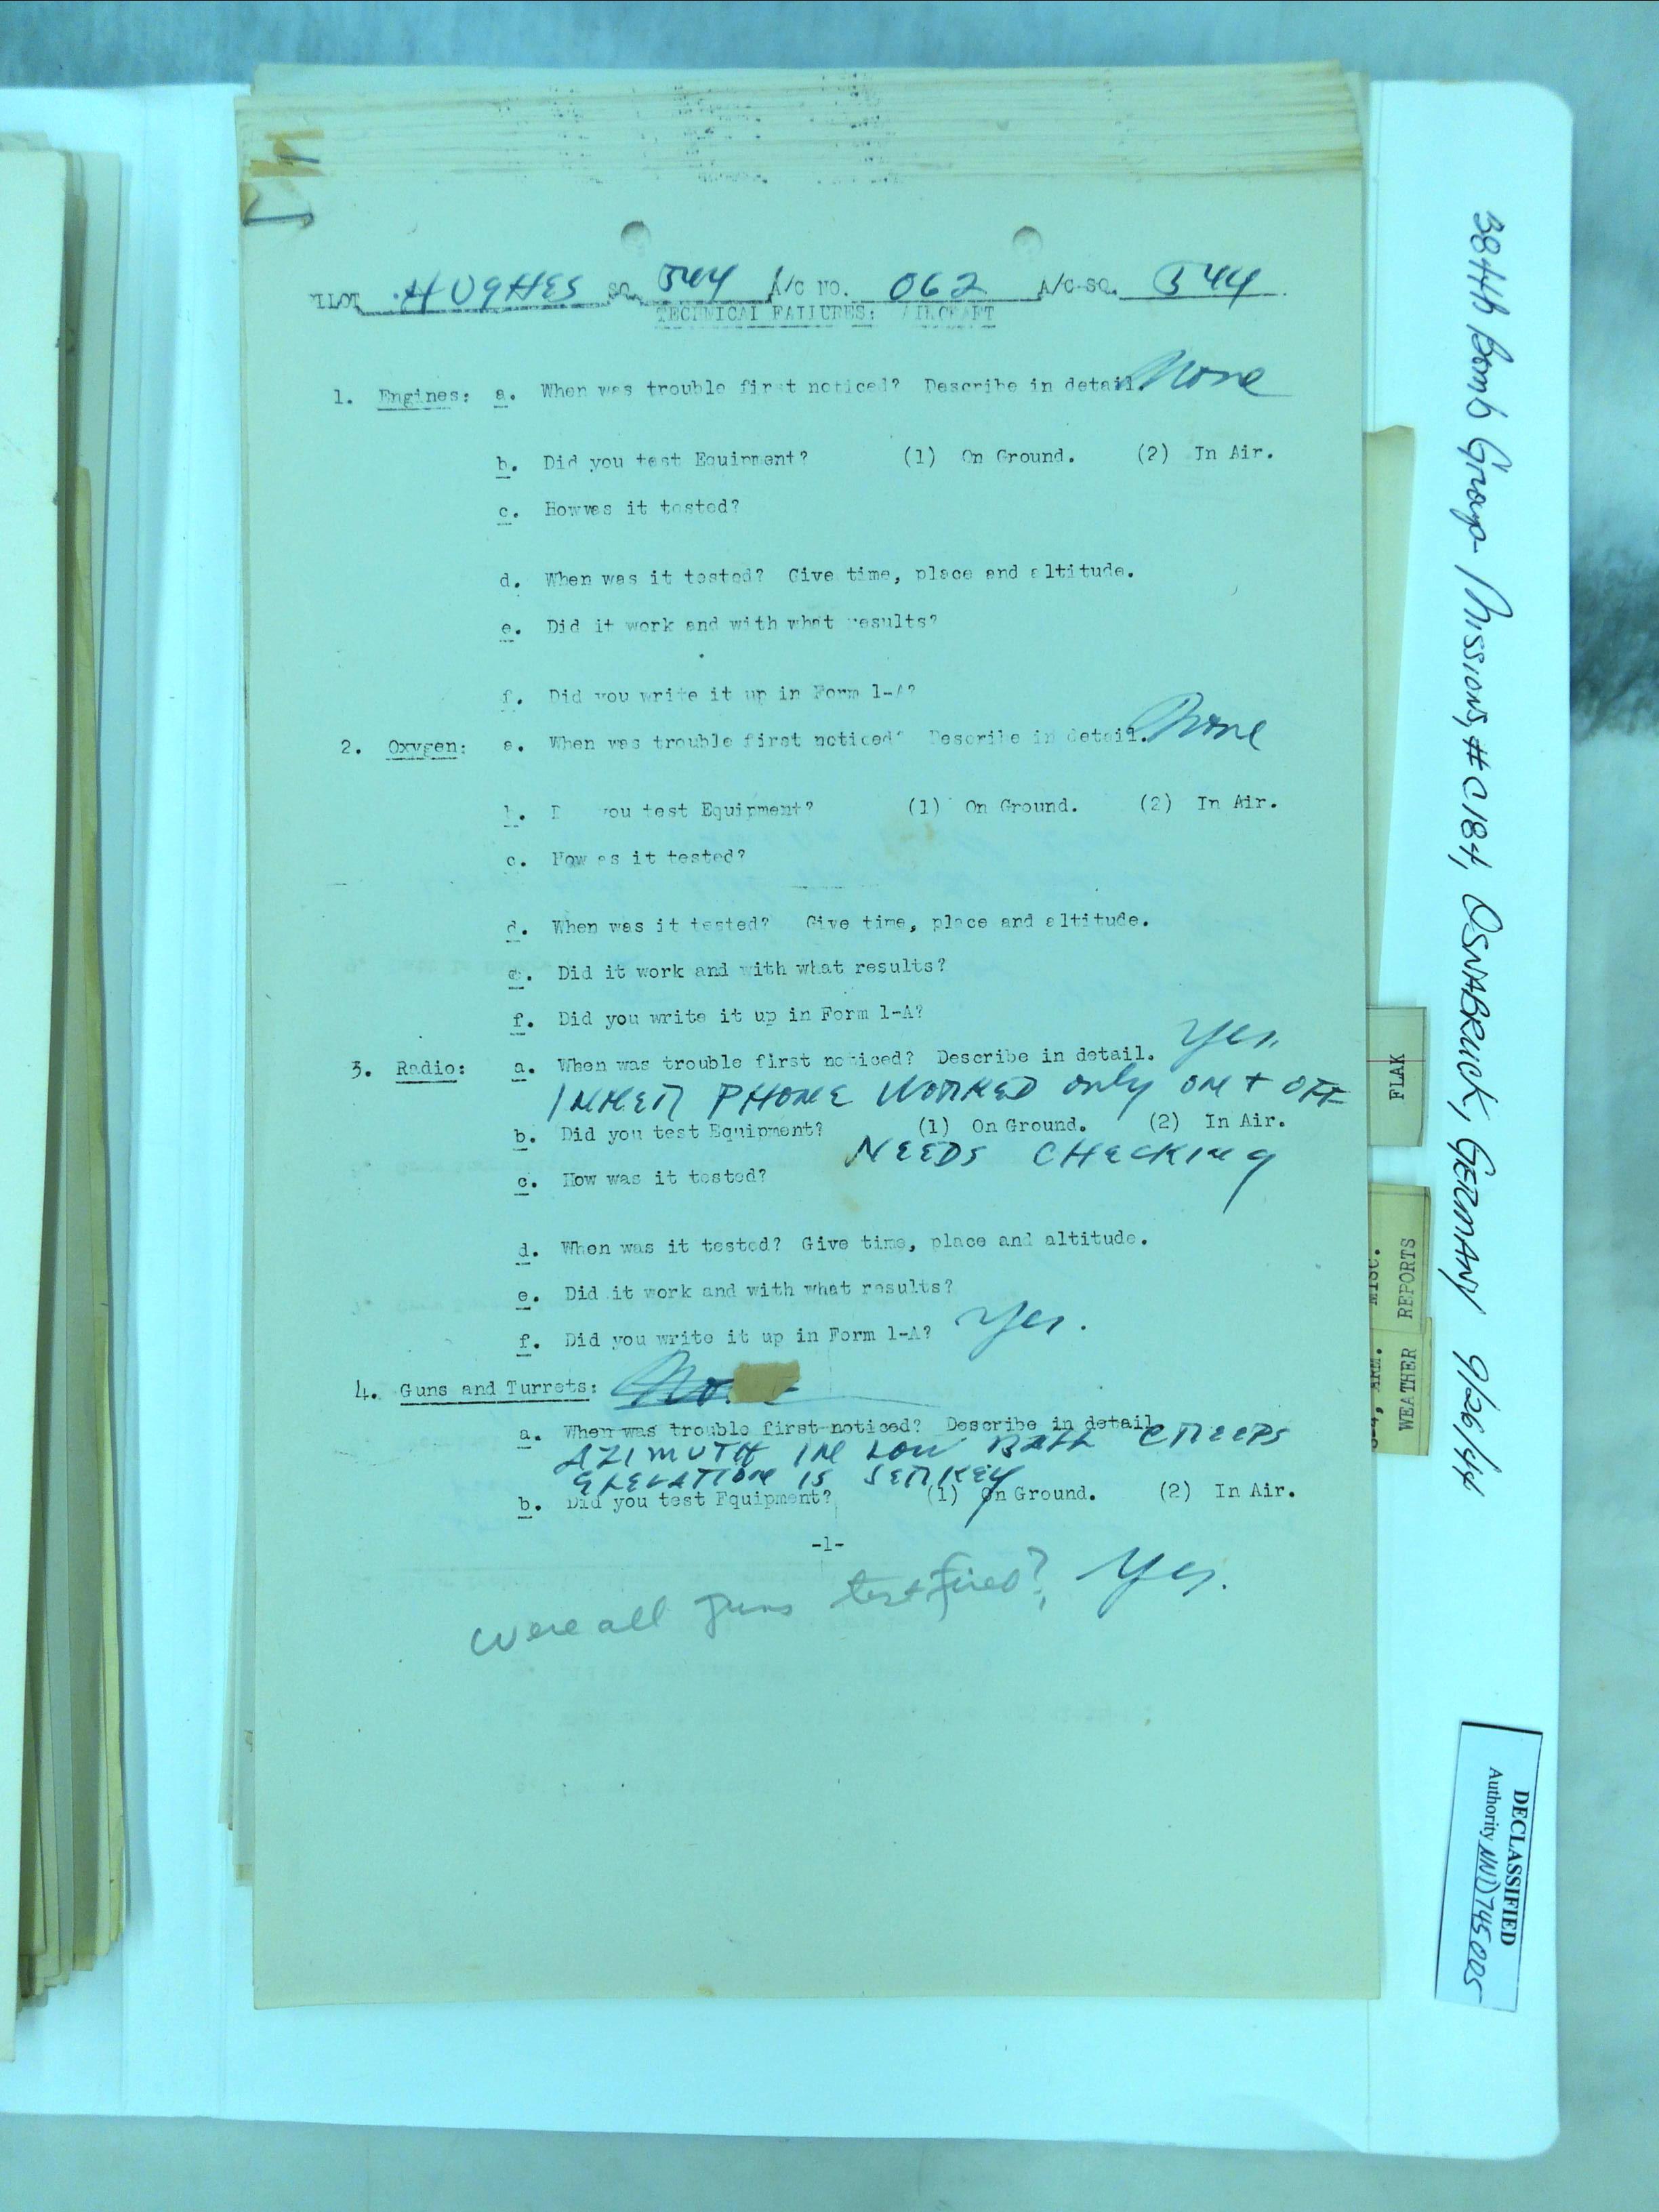 PILOT HUGHES SQ. 544 A/C NO. 062 A/C-SQ. 544
TECHNICAL FAILURES: AIRCRAFT
1. Engines: a. When was trouble first noticed? Describe in detail. None
b. Did you test Equipment? (1) On Ground. (2) In Air.
c. Howwas it tested?
d. When was it tested? Give time, place and altitude.
e. Did it work and with what results?
f. Did you write it up in Form 1-A?
2. Oxygen: a. When was trouble first noticed? Describe in detail. None
b. D you test Equipment? (1) On Ground. (2) In Air.
c. How as it tested?
d. When was it tested? Give time, place and altitude.
e. Did it work and with what results?
f. Did you write it up in Form 1-A?
3. Radio: a. When was trouble first noticed? Describe in detail. Yes.
INNER PHONE WORKED only ON + OFF
b. Did you test Equipment? (1) On Ground. (2) In Air.
NEEDS CHECKING
c. How was it tested?
d. When was it tested? Give time, place and altitude.
e. Did it work and with what results?
f. Did you write it up in Form 1-A? Yes.
4. Guns and Turrets:
a. When was trouble first noticed? Describe in detail
AZIMUTH IN LOW BALL CREEPS
ELEVATION IS JERKEY
b. Did you test Equipment? (1) On Ground. (2) In Air.
-1-
were all guns test fired? Yes.
384th Bomb Group Missions, #C184, OSNABRUCK, GERMANY 9/26/44
FLAK
MISC. REPORTS
WEATHER
DECLASSIFIED
Authority NND 745005